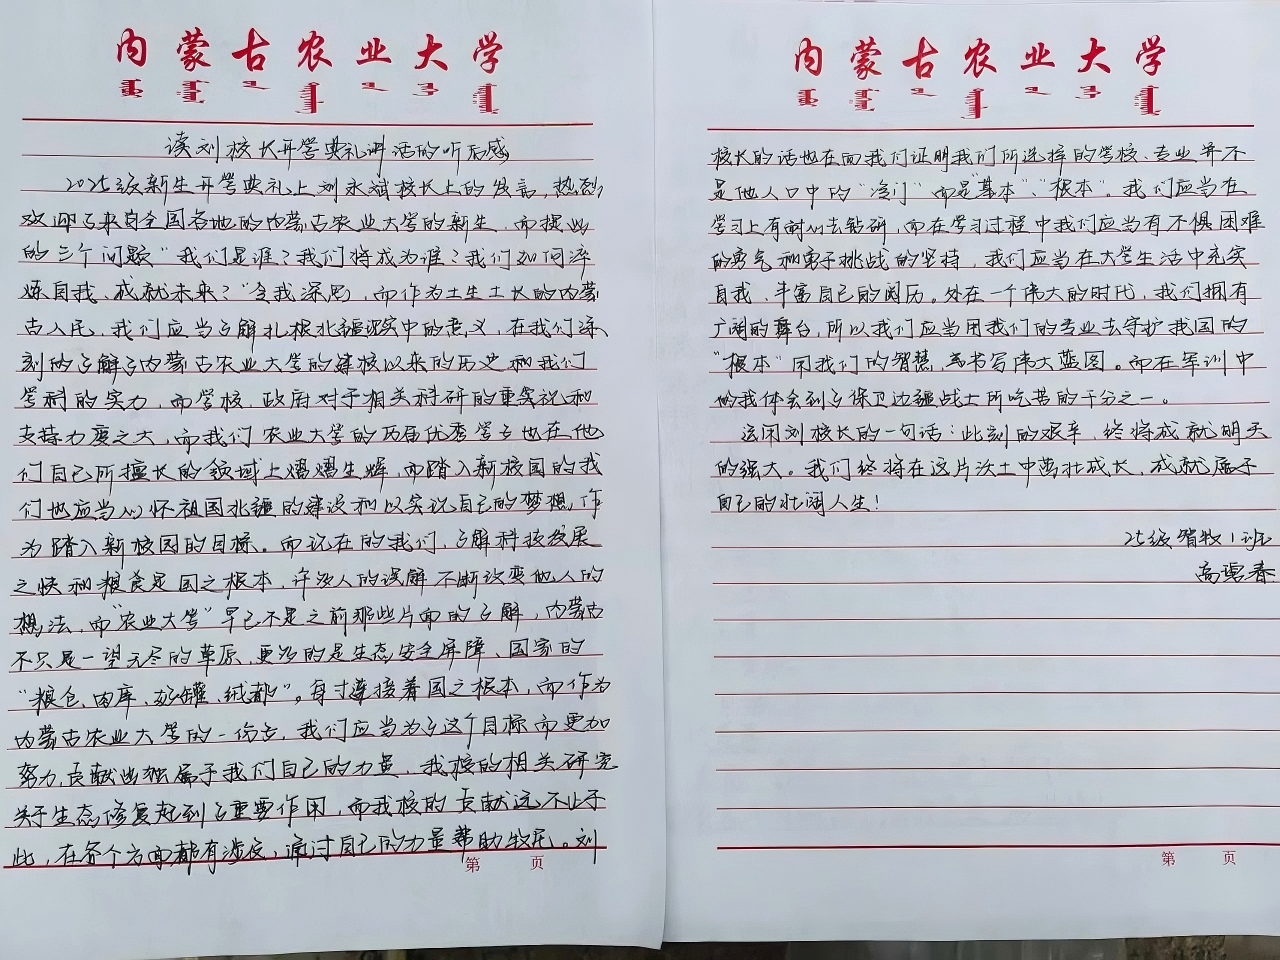 内蒙古农业大学
读刘校长开学典礼讲话的听后感
2025级新生开学典礼上刘永斌校长上的发言，热烈
欢迎了来自全国各地的内蒙古农业大学的新生，而提出
的三个问题“我们是谁？我们将成为谁？我们如何淬
炼自我、成就未来？”令我深思，而作为土生土长的内蒙
古人民，我们应当了解扎根北疆现实中的意义，在我们深
刻的了解了内蒙古农业大学的建校以来的历史和我们
学科的实力，而学校、政府对于相关科研的重视和
支持力度之大，而我们农业大学的历届优秀学子也在他
们自己所擅长的领域上熠熠生辉，而踏入新校园的我
们也应当心怀祖国北疆的建设和以实现自己的梦想，作
为踏入新校园的目标。而现在的我们，了解科技发展
之快和粮食是国之根本，许多人的误解不断改变他人的
想法，而“农业大学”早已不是之前那些片面的了解，内蒙古
不只是一望无尽的草原，更多的是生态安全屏障、国家的
“粮仓、肉库、奶罐、绒都”。每寸连接着国之根本，而作为
内蒙古农业大学的一份子，我们应当为了这个目标而更加
努力，贡献出独属于我们自己的力量，我校的相关研究
关于生态修复起到了重要作用，而我校的贡献远不止于
此，在各个方面都有涉及，通过自己的力量帮助牧民。刘
第 页
内蒙古农业大学
校长的话也在向我们证明我们所选择的学校、专业并不
是他人口中的“冷门”而是“基本”、“根本”。我们应当在
学习上有耐心去钻研，而在学习过程中我们应当有不惧困难
的勇气和勇于挑战的坚持，我们应当在大学生活中充实
自我、丰富自己的阅历。处在一个伟大的时代，我们拥有
广阔的舞台，所以我们应当用我们的专业去守护我国的
“根本”用我们的智慧，去书写伟大蓝图。而在军训中
的我体会到了保卫边疆战士所吃苦的千分之一。
运用刘校长的一句话：此刻的艰辛，终将成就明天
的强大。我们终将在这片沃土中茁壮成长，成就属于
自己的壮阔人生！
25级智牧1班
高碧香
第 页